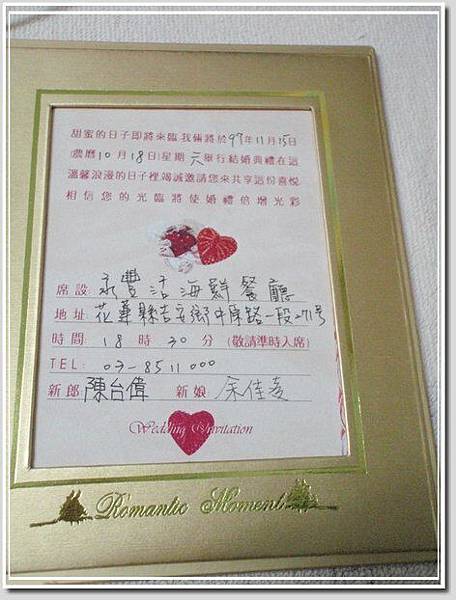 甜蜜的日子即將來臨,我倆將於97年11月15日
(農曆10月18日)星期六舉行結婚典禮在這
溫馨浪漫的日子裡竭誠邀請您來共享這份喜悅
相信您的光臨將使婚禮倍增光彩
席設:永豐活海鮮餐廳
地址:花蓮縣吉安鄉中原路一段271號
時間:18時30分(敬請準時入席)
TEL:03-8511000
新郎:陳台偉 新娘:余佳
Wedding Invitation
Romantic Moment